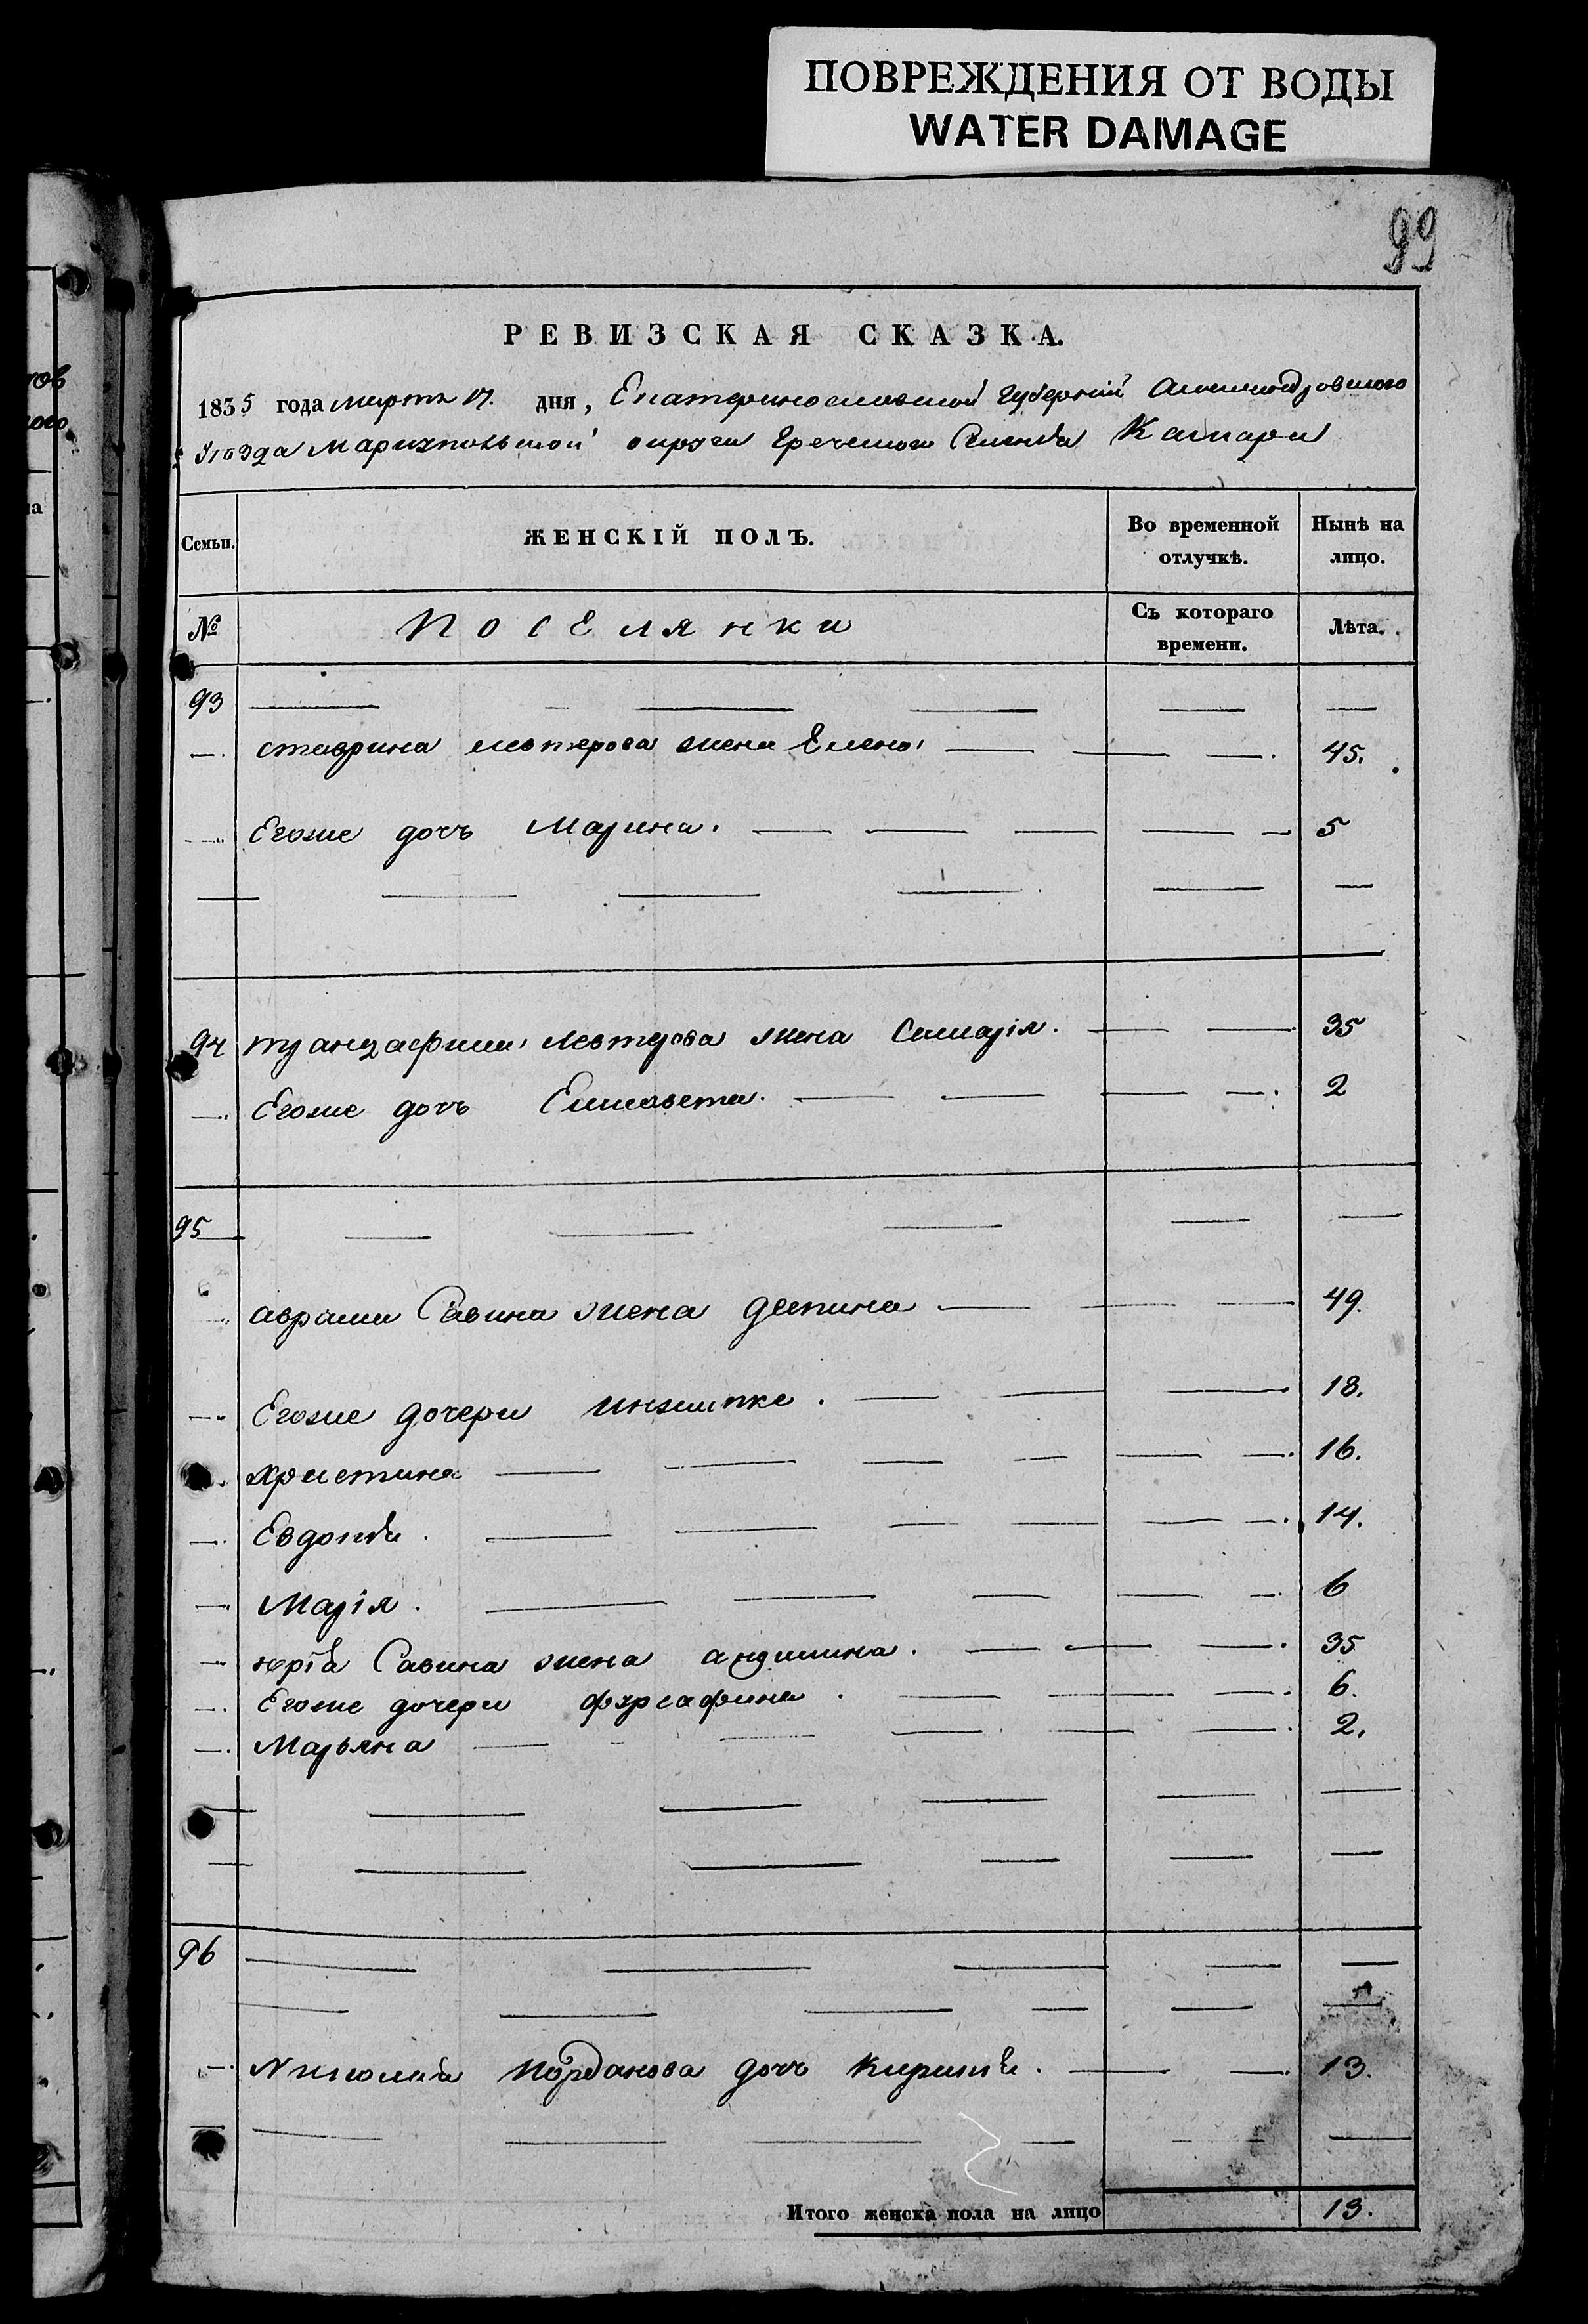 ПОВРЕЖДЕНИЯ ОТ ВОДЫ
WATER DAMAGE
99
РЕВИЗСКАЯ СКАЗКА.
1835 года марта 17. дня, Екатеринославской губерніи Александровского
уезда Мариупольской округи Греческого Селенія Камари
Семьи. ЖЕНСКІЙ ПОЛЪ. Во временной отлучкѣ. Нынѣ на лицо.
№ Поселянки Съ котораго времени. Лѣта.
93
ставрина левтерова жена Елена 45.
Егоже дочь Марина. 5
94 левтерова жена 35
Егоже дочь Елисавета. 2
95
аврама Савина жена деспина 49.
Егоже дочери 18.
христина 16.
Евдокія. 14.
Марія. 6
юрія Савина жена 35
Егоже дочери 6.
Марьяна 2.
96
Николая Йорданова дочь 13.
Итого женска пола на лицо 13.